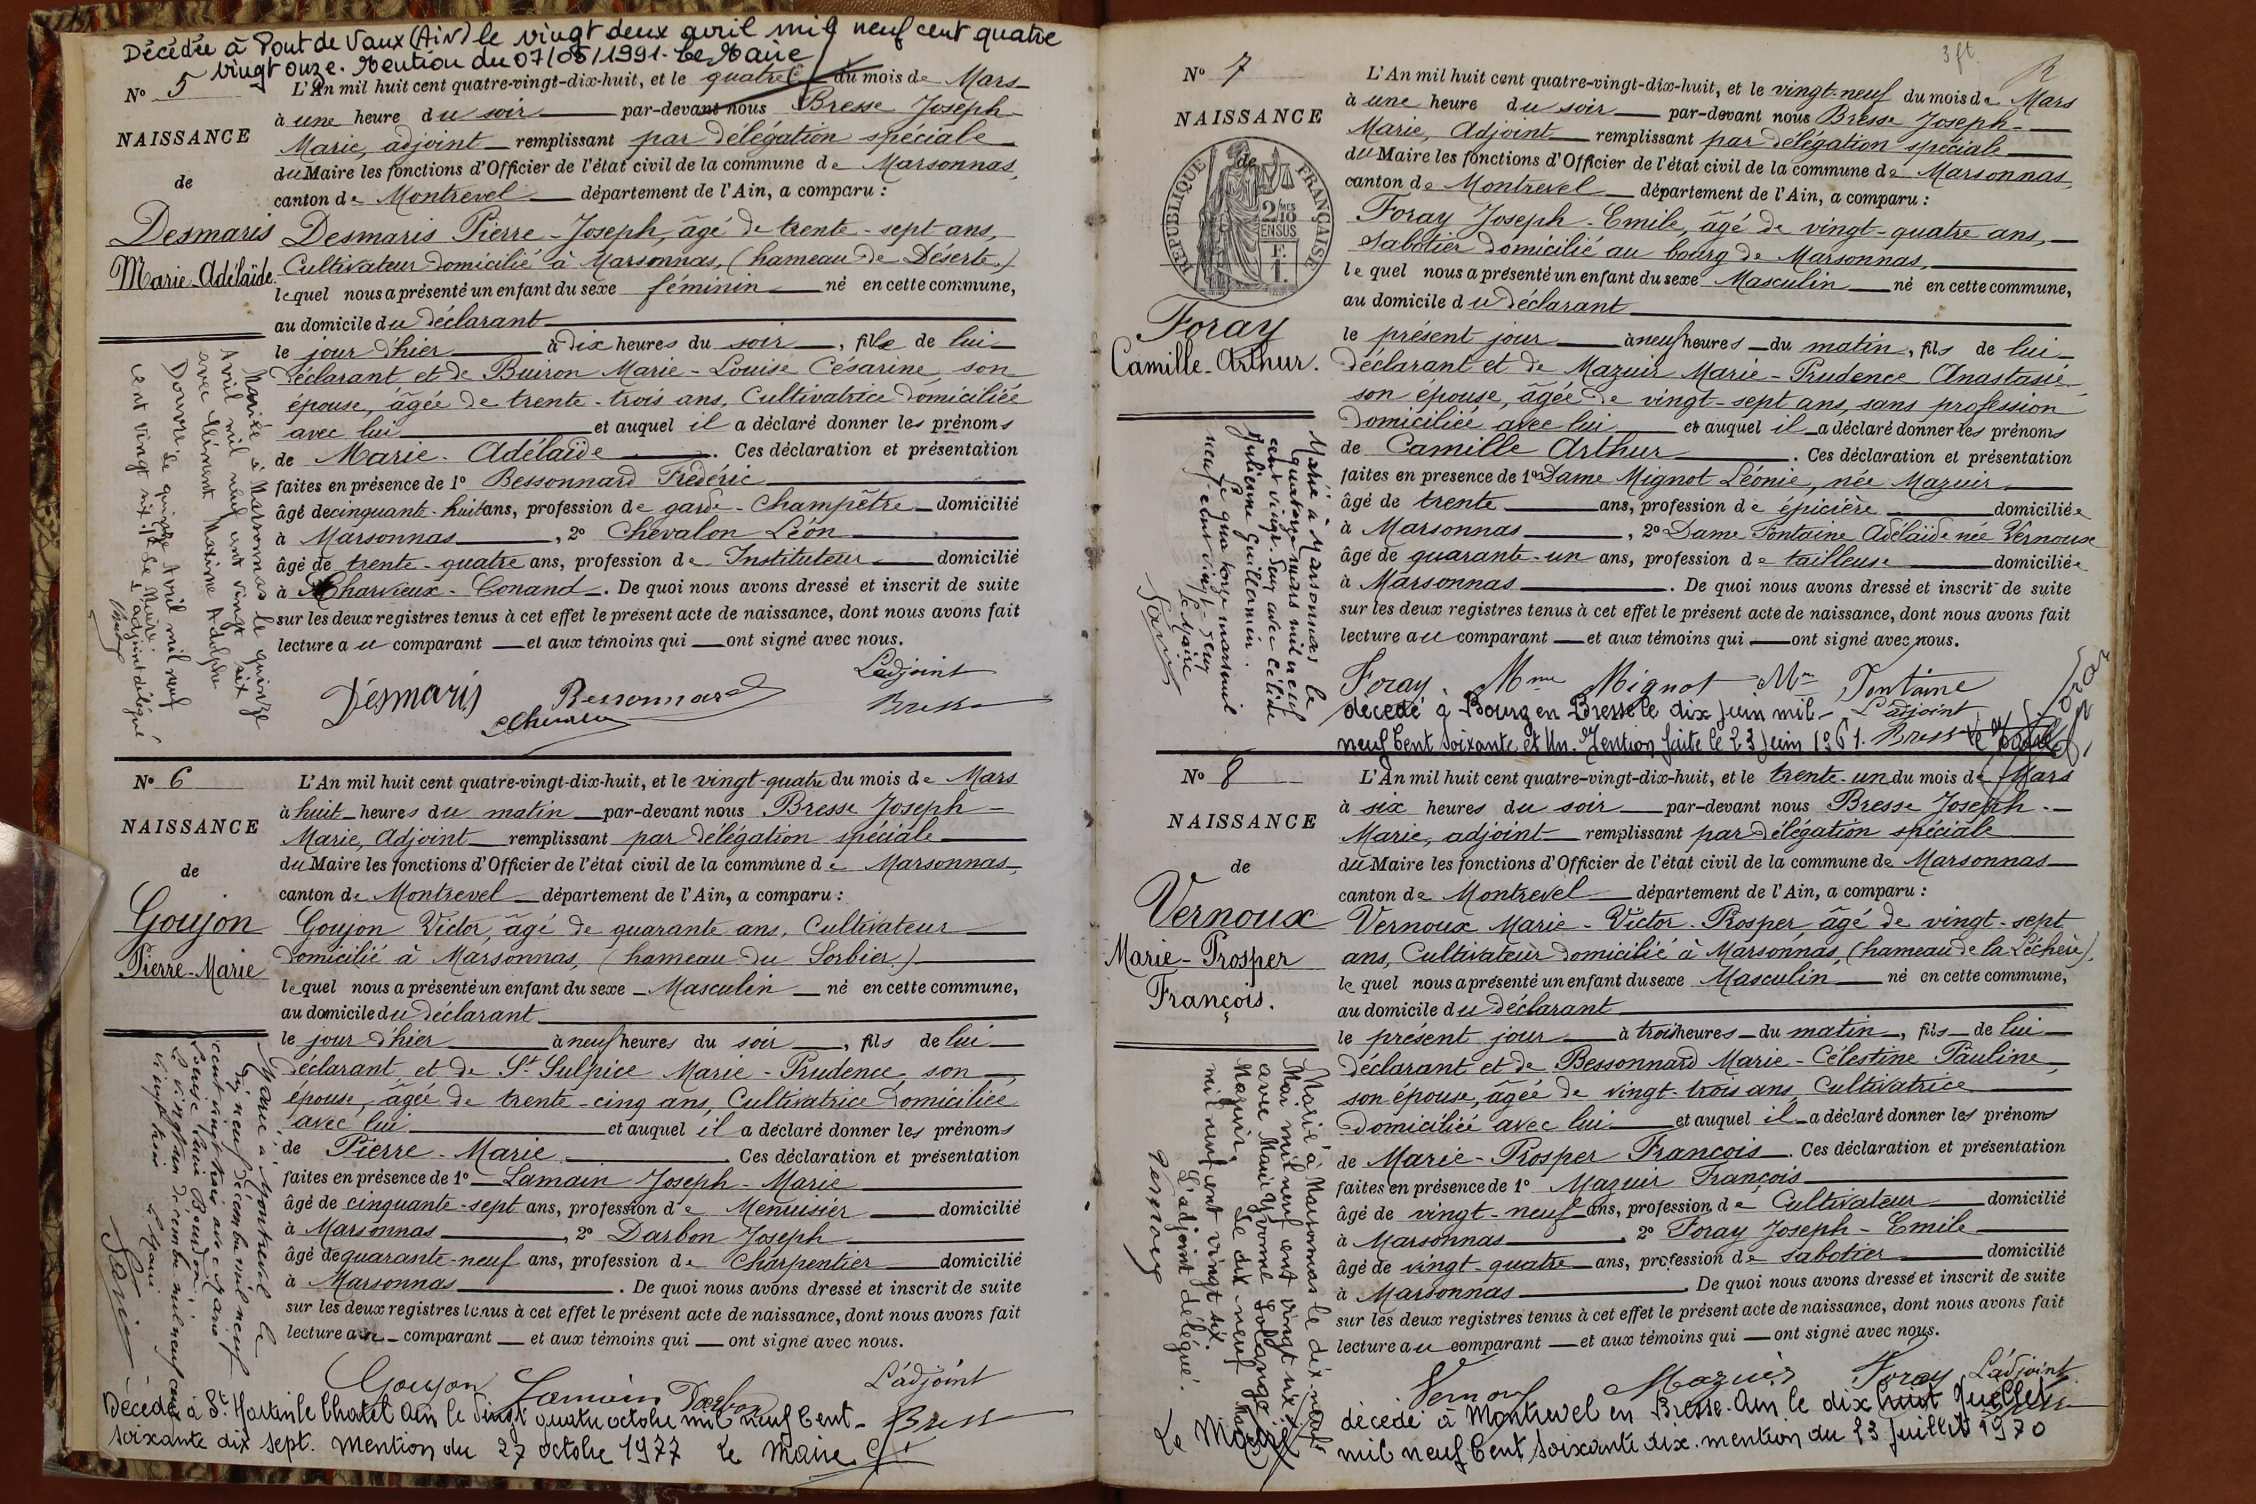 Décédée à Pont de Vaux (Ain) le vingt deux avril mil neuf cent quatre
vingt onze. Mention du 07/05/1991. Le Maire
N° 5
NAISSANCE
de
Desmaris
Marie-Adélaïde.
L'An mil huit cent quatre-vingt-dix-huit, et le quatre du mois de Mars
à une heure du soir par-devant nous Bresse Joseph
Marie, adjoint remplissant par délégation spéciale
du Maire les fonctions d'Officier de l'état civil de la commune de Marsonnas,
canton de Montrevel département de l'Ain, a comparu :
Desmaris Pierre-Joseph, âgé de trente-sept ans,
Cultivateur domicilié à Marsonnas, (hameau de Déserte.)
lequel nous a présenté un enfant du sexe féminin né en cette commune,
au domicile du déclarant
le jour d'hier à dix heures du soir, fille de lui
déclarant et de Buiron Marie-Louise Césarine, son
épouse, âgée de trente-trois ans, Cultivatrice domiciliée
avec lui et auquel il a déclaré donner les prénoms
de Marie-Adélaïde. Ces déclaration et présentation
faites en présence de 1° Bessonnard Frédéric
âgé de cinquante-huit ans, profession de garde-Champêtre domicilié
à Marsonnas, 2° Chevalon Léon
âgé de trente-quatre ans, profession de Instituteur domicilié
à Charvieux-Conand. De quoi nous avons dressé et inscrit de suite
sur les deux registres tenus à cet effet le présent acte de naissance, dont nous avons fait
lecture au comparant et aux témoins qui ont signé avec nous.
Desmaris Bessonnard L'adjoint
Bresse
Mariée à Marsonnas le quinze
Avril mil neuf cent vingt six
avec Clément Maxime Adolphe
Douvre. Le quinze Avril mil neuf
cent vingt six. Le Maire
L'adjoint délégué
N° 6
NAISSANCE
de
Goujon
Pierre-Marie
L'An mil huit cent quatre-vingt-dix-huit, et le vingt-quatre du mois de Mars
à huit heures du matin par-devant nous Bresse Joseph-
Marie, Adjoint remplissant par délégation spéciale
du Maire les fonctions d'Officier de l'état civil de la commune de Marsonnas,
canton de Montrevel département de l'Ain, a comparu :
Goujon Victor, âgé de quarante ans, Cultivateur
domicilié à Marsonnas, (hameau du Sorbier.)
lequel nous a présenté un enfant du sexe Masculin né en cette commune,
au domicile du déclarant
le jour d'hier à neuf heures du soir, fils de lui
déclarant et de St Sulpice Marie-Prudence, son
épouse, âgée de trente-cinq ans, Cultivatrice domiciliée
avec lui et auquel il a déclaré donner les prénoms
de Pierre-Marie. Ces déclaration et présentation
faites en présence de 1° Lamain Joseph-Marie
âgé de cinquante-sept ans, profession de Menuisier domicilié
à Marsonnas, 2° Darbon Joseph
âgé de quarante-neuf ans, profession de Charpentier domicilié
à Marsonnas. De quoi nous avons dressé et inscrit de suite
sur les deux registres tenus à cet effet le présent acte de naissance, dont nous avons fait
lecture au comparant et aux témoins qui ont signé avec nous.
Goujon Lamain Darbon L'adjoint
Bresse
Marié à Montrevel le
dix neuf décembre mil neuf
cent vingt trois avec Marie
Louise
Le vingt un décembre mil neuf cent
vingt trois Le Maire
Décédé à St Martin le Chatel Ain le vingt quatre octobre mil neuf cent-
soixante dix sept. Mention du 27 octobre 1977 Le Maire
3 ft
N° 7
NAISSANCE
de
RÉPUBLIQUE FRANÇAISE
2/10 MES
EN SUS
Foray
Camille-Arthur.
L'An mil huit cent quatre-vingt-dix-huit, et le vingt-neuf du mois de Mars
à une heure du soir par-devant nous Bresse Joseph-
Marie, Adjoint remplissant par délégation spéciale
du Maire les fonctions d'Officier de l'état civil de la commune de Marsonnas,
canton de Montrevel département de l'Ain, a comparu :
Foray Joseph-Emile, âgé de vingt-quatre ans,
Sabotier domicilié au bourg de Marsonnas,
lequel nous a présenté un enfant du sexe Masculin né en cette commune,
au domicile du déclarant
le présent jour à neuf heures du matin, fils de lui
déclarant et de Mazuir Marie-Prudence Anastasie
son épouse, âgée de vingt-sept ans, sans profession
domiciliée avec lui et auquel il a déclaré donner les prénoms
de Camille Arthur. Ces déclaration et présentation
faites en présence de 1° Dame Mignot Léonie, née Mazuir
âgé de trente ans, profession de épicière domiciliée
à Marsonnas, 2° Dame Fontaine Adélaïde née Vernoux
âgé de quarante-un ans, profession de tailleuse domiciliée
à Marsonnas. De quoi nous avons dressé et inscrit de suite
sur les deux registres tenus à cet effet le présent acte de naissance, dont nous avons fait
lecture au comparant et aux témoins qui ont signé avec nous.
Foray. Mme Mignot Mme Fontaine
L'adjoint
Bresse
Marié à Marsonnas le
quatorze mars mil neuf
cent vingt-deux avec Célide
Julienne Guillemin.
Le quatorze mars mil
neuf cent vingt-deux
Le Maire
décédé à Bourg en Bresse le dix juin mil-
neuf cent soixante et un. Mention faite le 23 juin 1961.
N° 8
NAISSANCE
de
Vernoux
Marie-Prosper
François.
L'An mil huit cent quatre-vingt-dix-huit, et le trente-un du mois de Mars
à six heures du soir par-devant nous Bresse Joseph-
Marie, adjoint remplissant par délégation spéciale
du Maire les fonctions d'Officier de l'état civil de la commune de Marsonnas
canton de Montrevel département de l'Ain, a comparu :
Vernoux Marie-Victor-Prosper, âgé de vingt-sept
ans, Cultivateur domicilié à Marsonnas, (hameau de la Léchère).
lequel nous a présenté un enfant du sexe Masculin né en cette commune,
au domicile du déclarant
le présent jour à trois heures du matin, fils de lui
déclarant et de Bessonnard Marie-Célestine Pauline,
son épouse, âgée de vingt-trois ans, Cultivatrice
domiciliée avec lui et auquel il a déclaré donner les prénoms
de Marie-Prosper François. Ces déclaration et présentation
faites en présence de 1° Mazuir François
âgé de vingt-neuf ans, profession de Cultivateur domicilié
à Marsonnas, 2° Foray Joseph-Emile
âgé de vingt-quatre ans, profession de sabotier domicilié
à Marsonnas. De quoi nous avons dressé et inscrit de suite
sur les deux registres tenus à cet effet le présent acte de naissance, dont nous avons fait
lecture au comparant et aux témoins qui ont signé avec nous.
Vernoux Mazuir Foray L'adjoint
Marié à Marsonnas le dix-neuf
Mai mil neuf cent vingt six
avec Marie Yvonne Solange
Mazuir. Le dix neuf Mai
mil neuf cent vingt six.
L'adjoint délégué.
Vernoux
Le Maire
décédé à Montrevel en Bresse. Ain le dix huit Juillet
mil neuf cent soixante dix. mention du 23 Juillet 1970